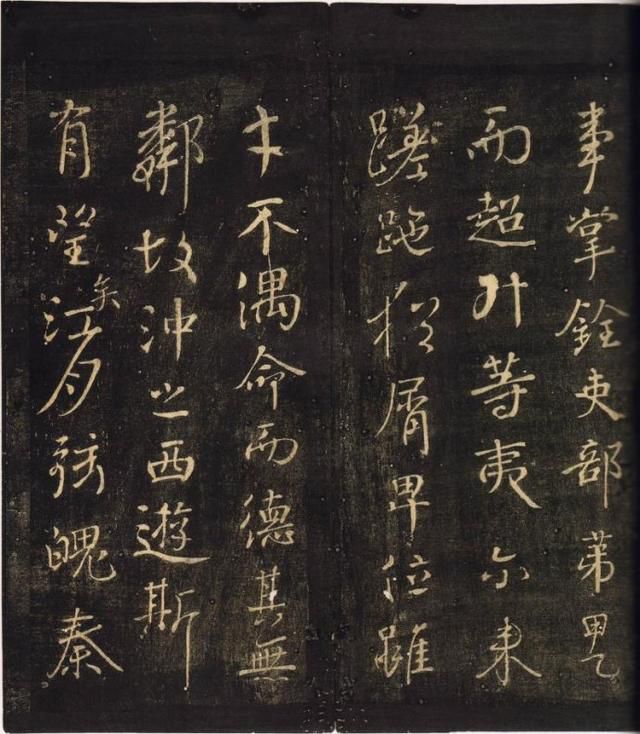 事掌銓吏部第甲乙
而超升等夷尔来
蹉跎猶屑卑位雖
才不偶命而德其無
鄰故沖之西遊斯
有望矣江月弦魄秦